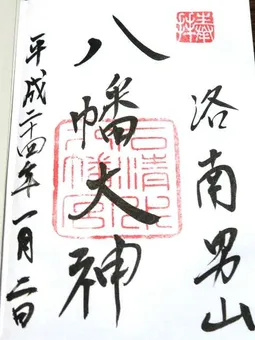 奉拝
洛南男山
八幡大神
石清水八幡宮
平成二十四年一月二日